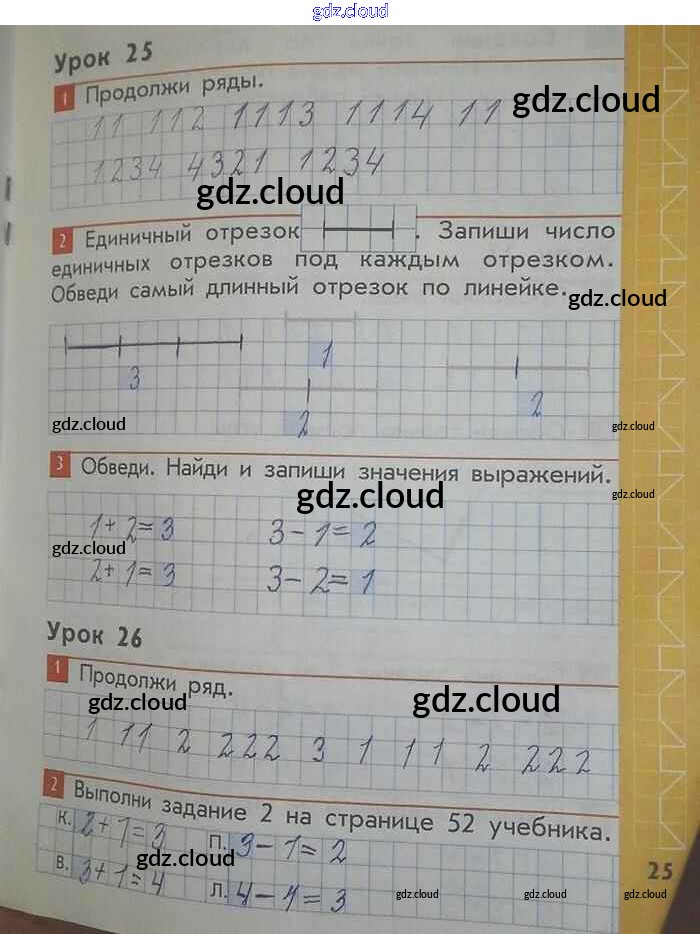 gdz.cloud
Урок 25
1 Продолжи ряды.
gdz.cloud
11 112 1113 1114 11
1234 4321 1234
gdz.cloud
2 Единичный отрезок . Запиши число
единичных отрезков под каждым отрезком.
Обведи самый длинный отрезок по линейке.
gdz.cloud
1
3
2
2
gdz.cloud
gdz.cloud
3 Обведи. Найди и запиши значения выражений.
gdz.cloud
gdz.cloud
1+2=3 3-1=2
gdz.cloud
2+1=3 3-2=1
Урок 26
1 Продолжи ряд.
gdz.cloud
gdz.cloud
1 11 2 222 3 1 11 2 222
2 Выполни задание 2 на странице 52 учебника.
к. 2+1=3 п. 3-1=2
gdz.cloud
в. 3+1=4 л. 4-1=3
25
gdz.cloud
gdz.cloud